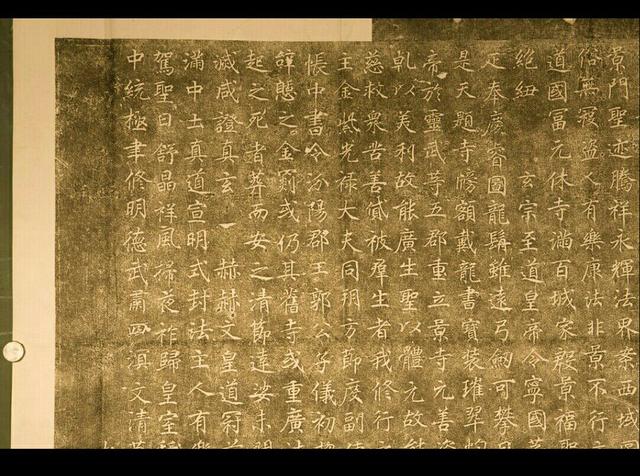 景門聖迹騰祥永輝法界案西域
俗無寇盜人有樂康法非景不行
道國富元休寺滿百城家殷景福
絕紐 玄宗至道皇帝令寧國
疋奉慶睿圖龍髯雖遠弓劒可攀
是天題寺牓額戴龍書寶裝璀翠
帝於靈武等五郡重立景寺元善
乹以美利故能廣生聖以體元故能
慈救衆苦善貸被羣生者我修行
王金紫光禄大夫同朔方節度副
帳中書令汾陽郡王郭公子儀初
辝憩之金罽或仍其舊寺或重廣
起之死者葬而安之清節達娑未聞
滅咸證真玄一赫赫文皇道冠前
滿中土真道宣明式封法主人有樂
駕聖日舒晶祥風掃夜祚歸皇室
中統極聿修明德武肅四溟文清